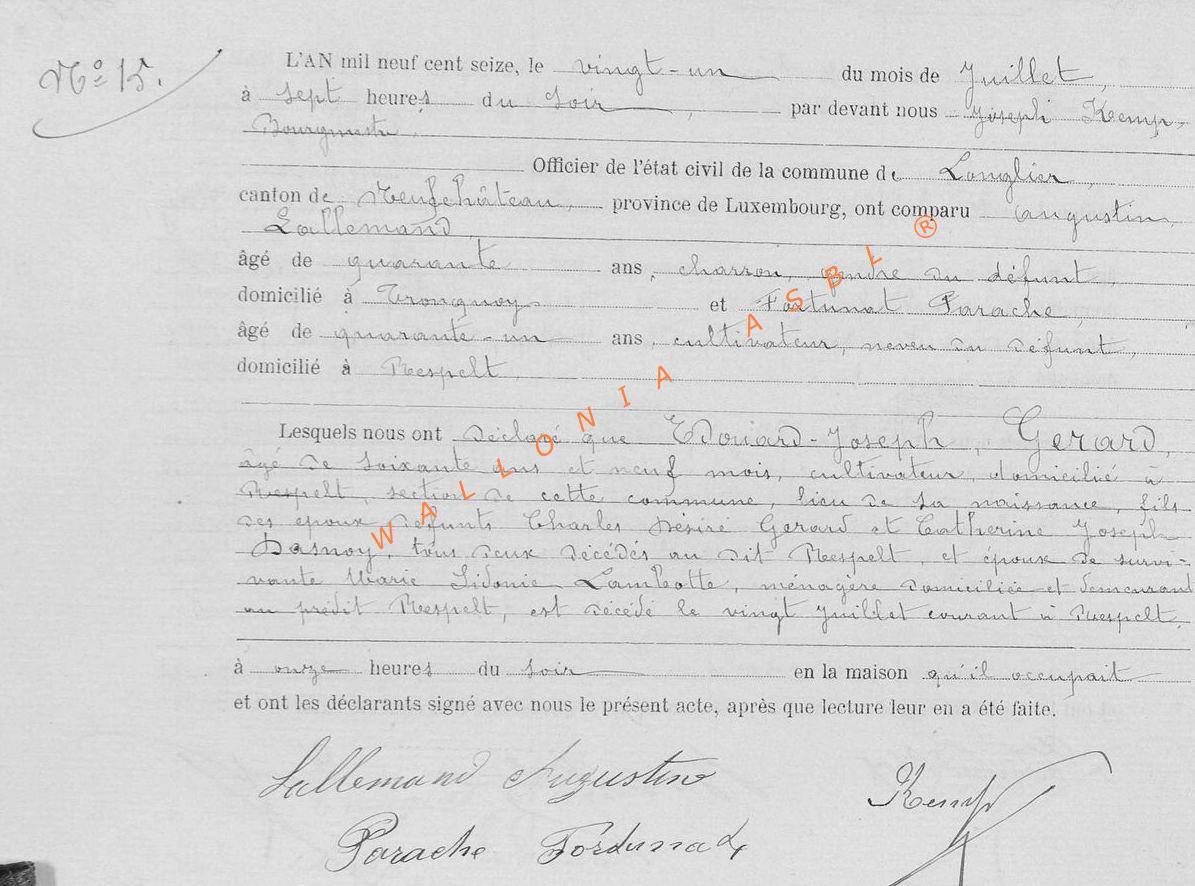 N° 15.
L'AN mil neuf cent seize, le vingt-un du mois de Juillet,
à sept heures du soir, par devant nous Joseph Kemp,
Bourgmestre,
Officier de l'état civil de la commune de Longlier,
canton de Neufchâteau, province de Luxembourg, ont comparu Augustin
Lallemand,
âgé de quarante ans, charron, gendre du défunt,
domicilié à Tronquoy et Fortunat Parache,
âgé de quarante-un ans, cultivateur, neveu du défunt,
domicilié à Respelt
Lesquels nous ont déclaré que Edouard-Joseph, Gerard,
âgé de soixante ans et neuf mois, cultivateur, domicilié à
Respelt, section de cette commune, lieu de sa naissance, fils
des époux défunts Charles Désiré Gerard et Catherine Joseph
Dasnoy, tous deux décédés au dit Respelt, et époux de survi-
vante Marie Sidonie Lambotte, ménagère domiciliée et demeurant
au prédit Respelt, est décédé le vingt Juillet courant à Respelt,
à onze heures du soir en la maison qu'il occupait
et ont les déclarants signé avec nous le présent acte, après que lecture leur en a été faite.
Lallemand Augustin
Kemp
Parache Fordunat
WALLONIA ASBL ®